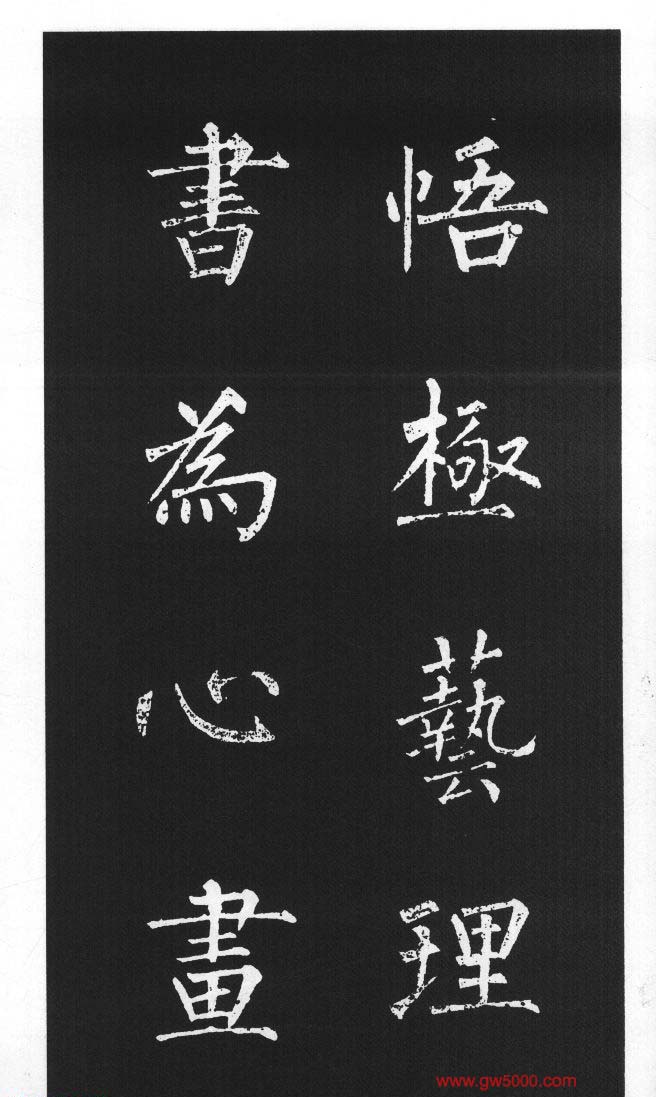 悟極藝理
書為心畫
www.gw5000.com